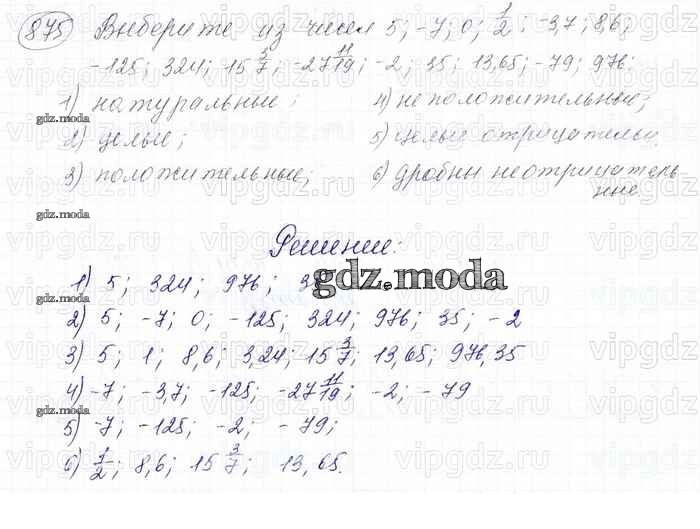 875 Выберите из чисел 5; -7; 0; 1/2; -3,7; 8,6;
-125; 324; 15 3/7; -27 11/19; -2; 35; 13,65; -79; 976:
1) натуральные; 4) неположительные;
gdz.moda
2) целые; 5) целые отрицательн.
3) положительные; 6) дробны неотрицатель
нные.
gdz.moda
Решение:
1) 5; 324; 976; 35
gdz.moda
gdz.moda
2) 5; -7; 0; -125; 324; 976; 35; -2
3) 5; 1; 8,6; 3,24; 15 3/7; 13,65; 976,35
4) -7; -3,7; -125; -27 11/19; -2; -79
gdz.moda
5) -7; -125; -2; -79;
6) 1/2; 8,6; 15 3/7; 13,65.
gdz.moda
vipgdz.ru